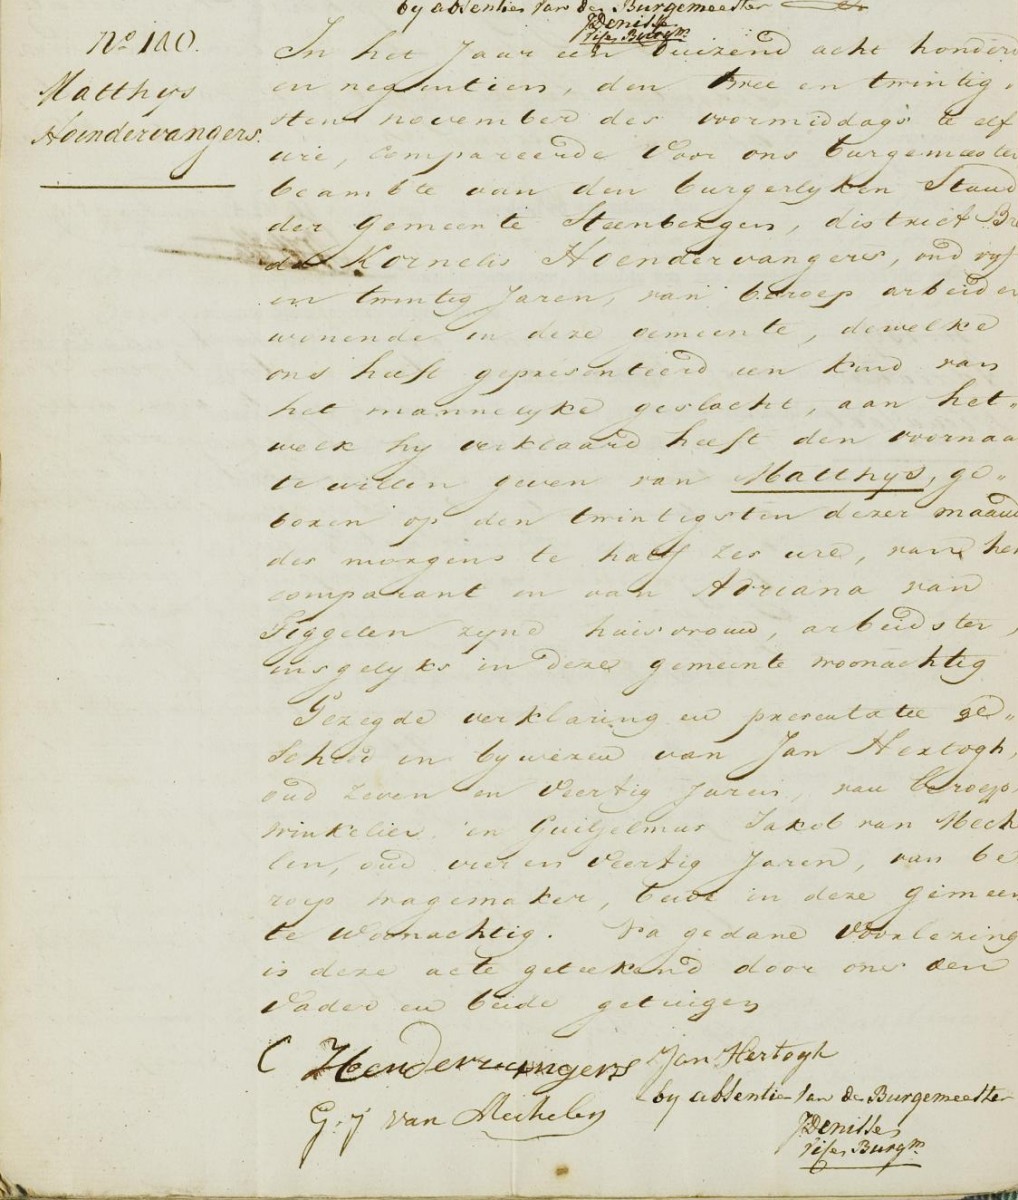 by absentie van de Burgemeester
JDenisse
vise Burgm
No 140.
Matthys
Hoendervangers.
In het Jaar een duizend acht honderd
en negentien, den twee en twintig,,
sten november des voormiddags te elf
ure, compareerde voor ons burgemeester
beambte van den burgerlyken Staad
der gemeente Steenbergen, district Bre
da Kornelis Hoendervangers, oud vyf
en twintig Jaren, van beroep arbeider
wonende in deze gemeente, dewelke
ons heeft gepresenteerd een kind van
het mannelyke geslacht, aan het,,
welk hy verklaard heeft den voornaa
te willen geven van Matthys, ge,,
boren op den twintigsten dezer maand
des morgens te half zes ure, van he
comparant en van Adriana van
Giggelen zynd huisvrouw, arbeidster,
insgelyks in deze gemeente woonachtig
Gezegde verklaring en presentatie ge,,
schied in bywezen van Jan Hertogh,
oud zeven en veertig Jaren, van beroep
winkelier en Guiljelmus Jakob van Mech
len, oud vier en veertig Jaren, van be
roep wagemaker, beide in deze gemeen
te woonachtig. Na gedane voorlezing
is deze acte geteekend door ons den
Vader en beide getuigen
C Hendervangers Jan Hertogh
G. J van Mechelen by absentie van de Burgemeester
JDenisse
vise Burgm